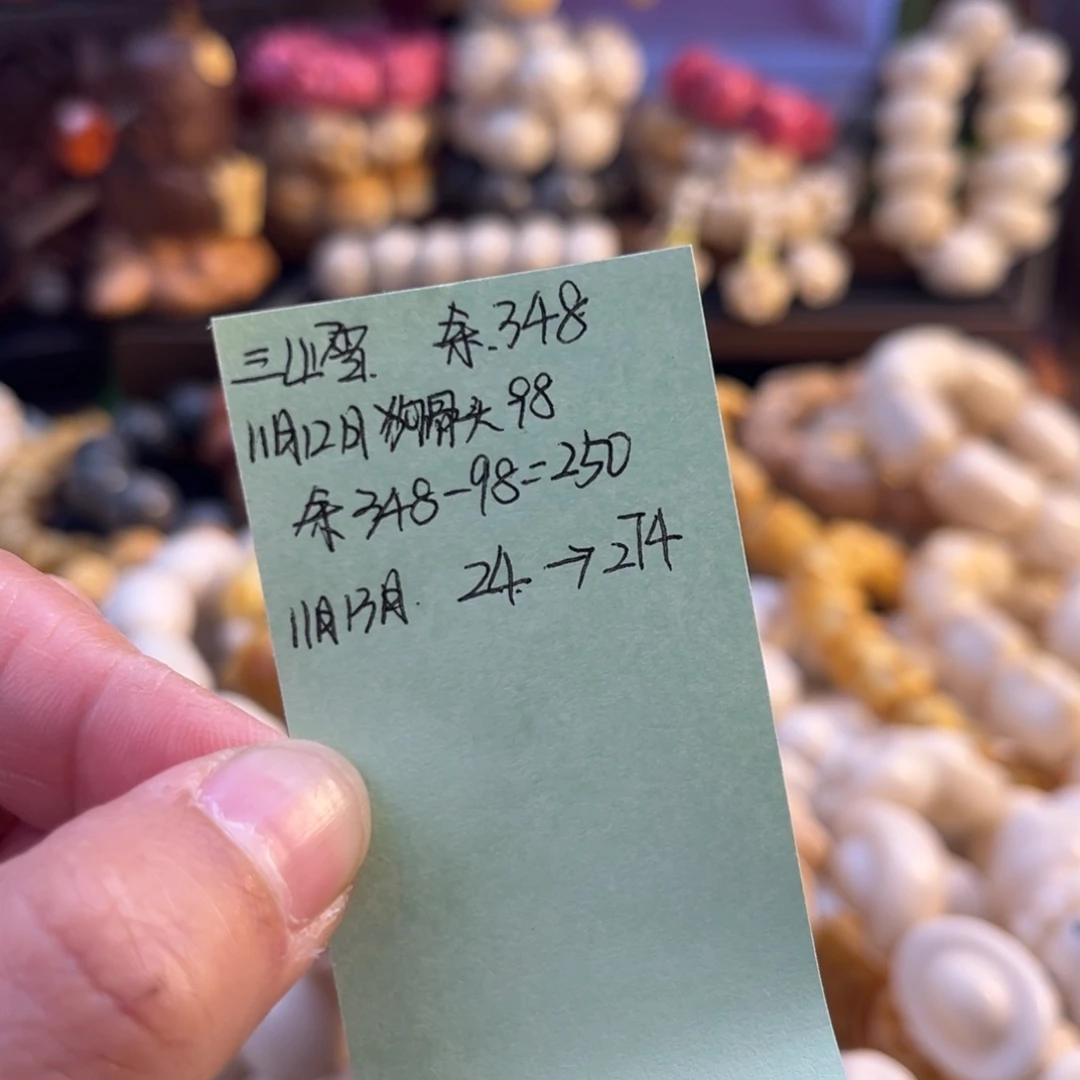 三山雪. 余.348
11月12日狗骨头98
余348-98=250
11月13月. 24.→274